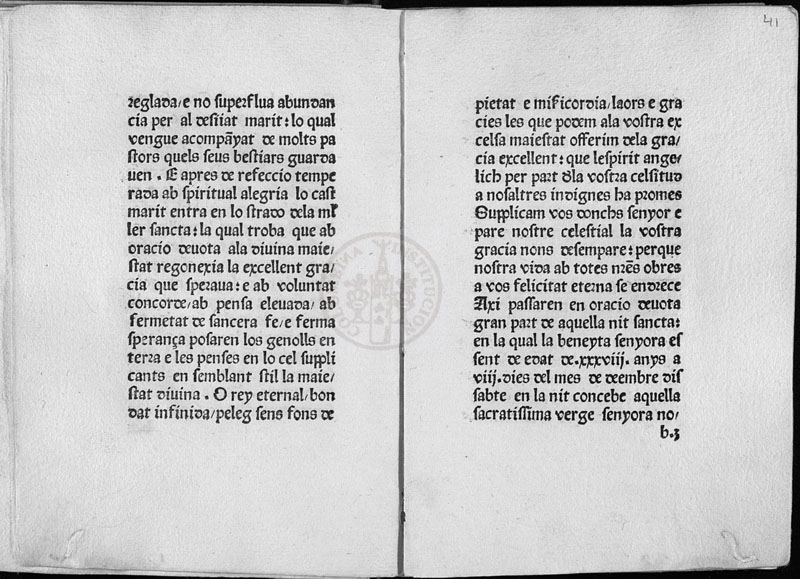 reglada/e no superflua abundan
cia per al desiiat marit: lo qual
vengue acompãyat de molts pa
stors quels seus bestiars guarda
uen . E apres de refeccio tempe
rada ab spiritual alegria lo cast
marit entra en lo strado dela mr̃
ler sancta: la qual troba que ab
oracio deuota ala diuina maie/
stat regonexia la excellent gra/
cia que speraua: e ab voluntat
concorde/ab pensa eleuada/ ab
fermetat de sancera fe/e ferma
sperança posaren los genolls en
terra e les penses en lo cel suppli
cants en semblant stil la maie/
stat diuina . O rey eternal/bon
dat infinida/peleg sens fons de
41
pietat e misicordia/laors e gra
cies les que podem ala vostra ex
celsa maiestat offerim dela gra/
cia excellent: que lespirit ange/
lich per part dla vostra celsitud
a nosaltres indignes ha promes
Supplicam vos donchs senyor e
pare nostre celestial la vostra
gracia nons desempare: perque
nostra vida ab totes nrẽs obres
a vos felicitat eterna se endrece
Axi passaren en oracio deuota
gran part de aquella nit sancta:
en la qual la beneyta senyora es
sent de edat de.xxxviij. anys a
viij.dies del mes de deembre dis
sabte en la nit concebe aquella
sacratissima verge senyora no/
b.3